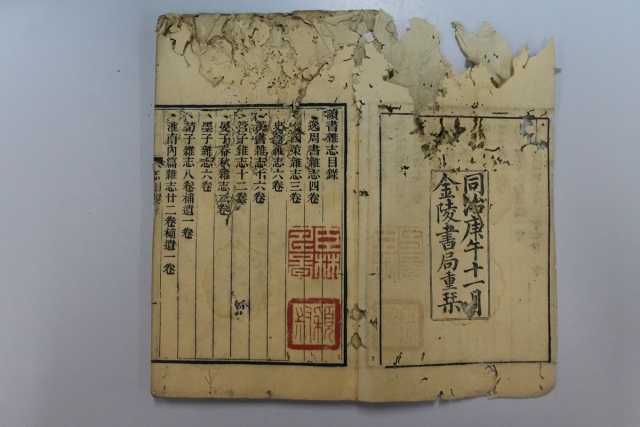 同治庚午十一月
金陵書局重栞
讀書雜志目錄
逸周書雜志四卷
戰國策雜志三卷
史記雜志六卷
漢書雜志十六卷
管子雜志十二卷
晏子春秋雜志二卷
墨子雜志六卷
荀子雜志八卷補遺一卷
淮南內篇雜志廿二卷補遺一卷